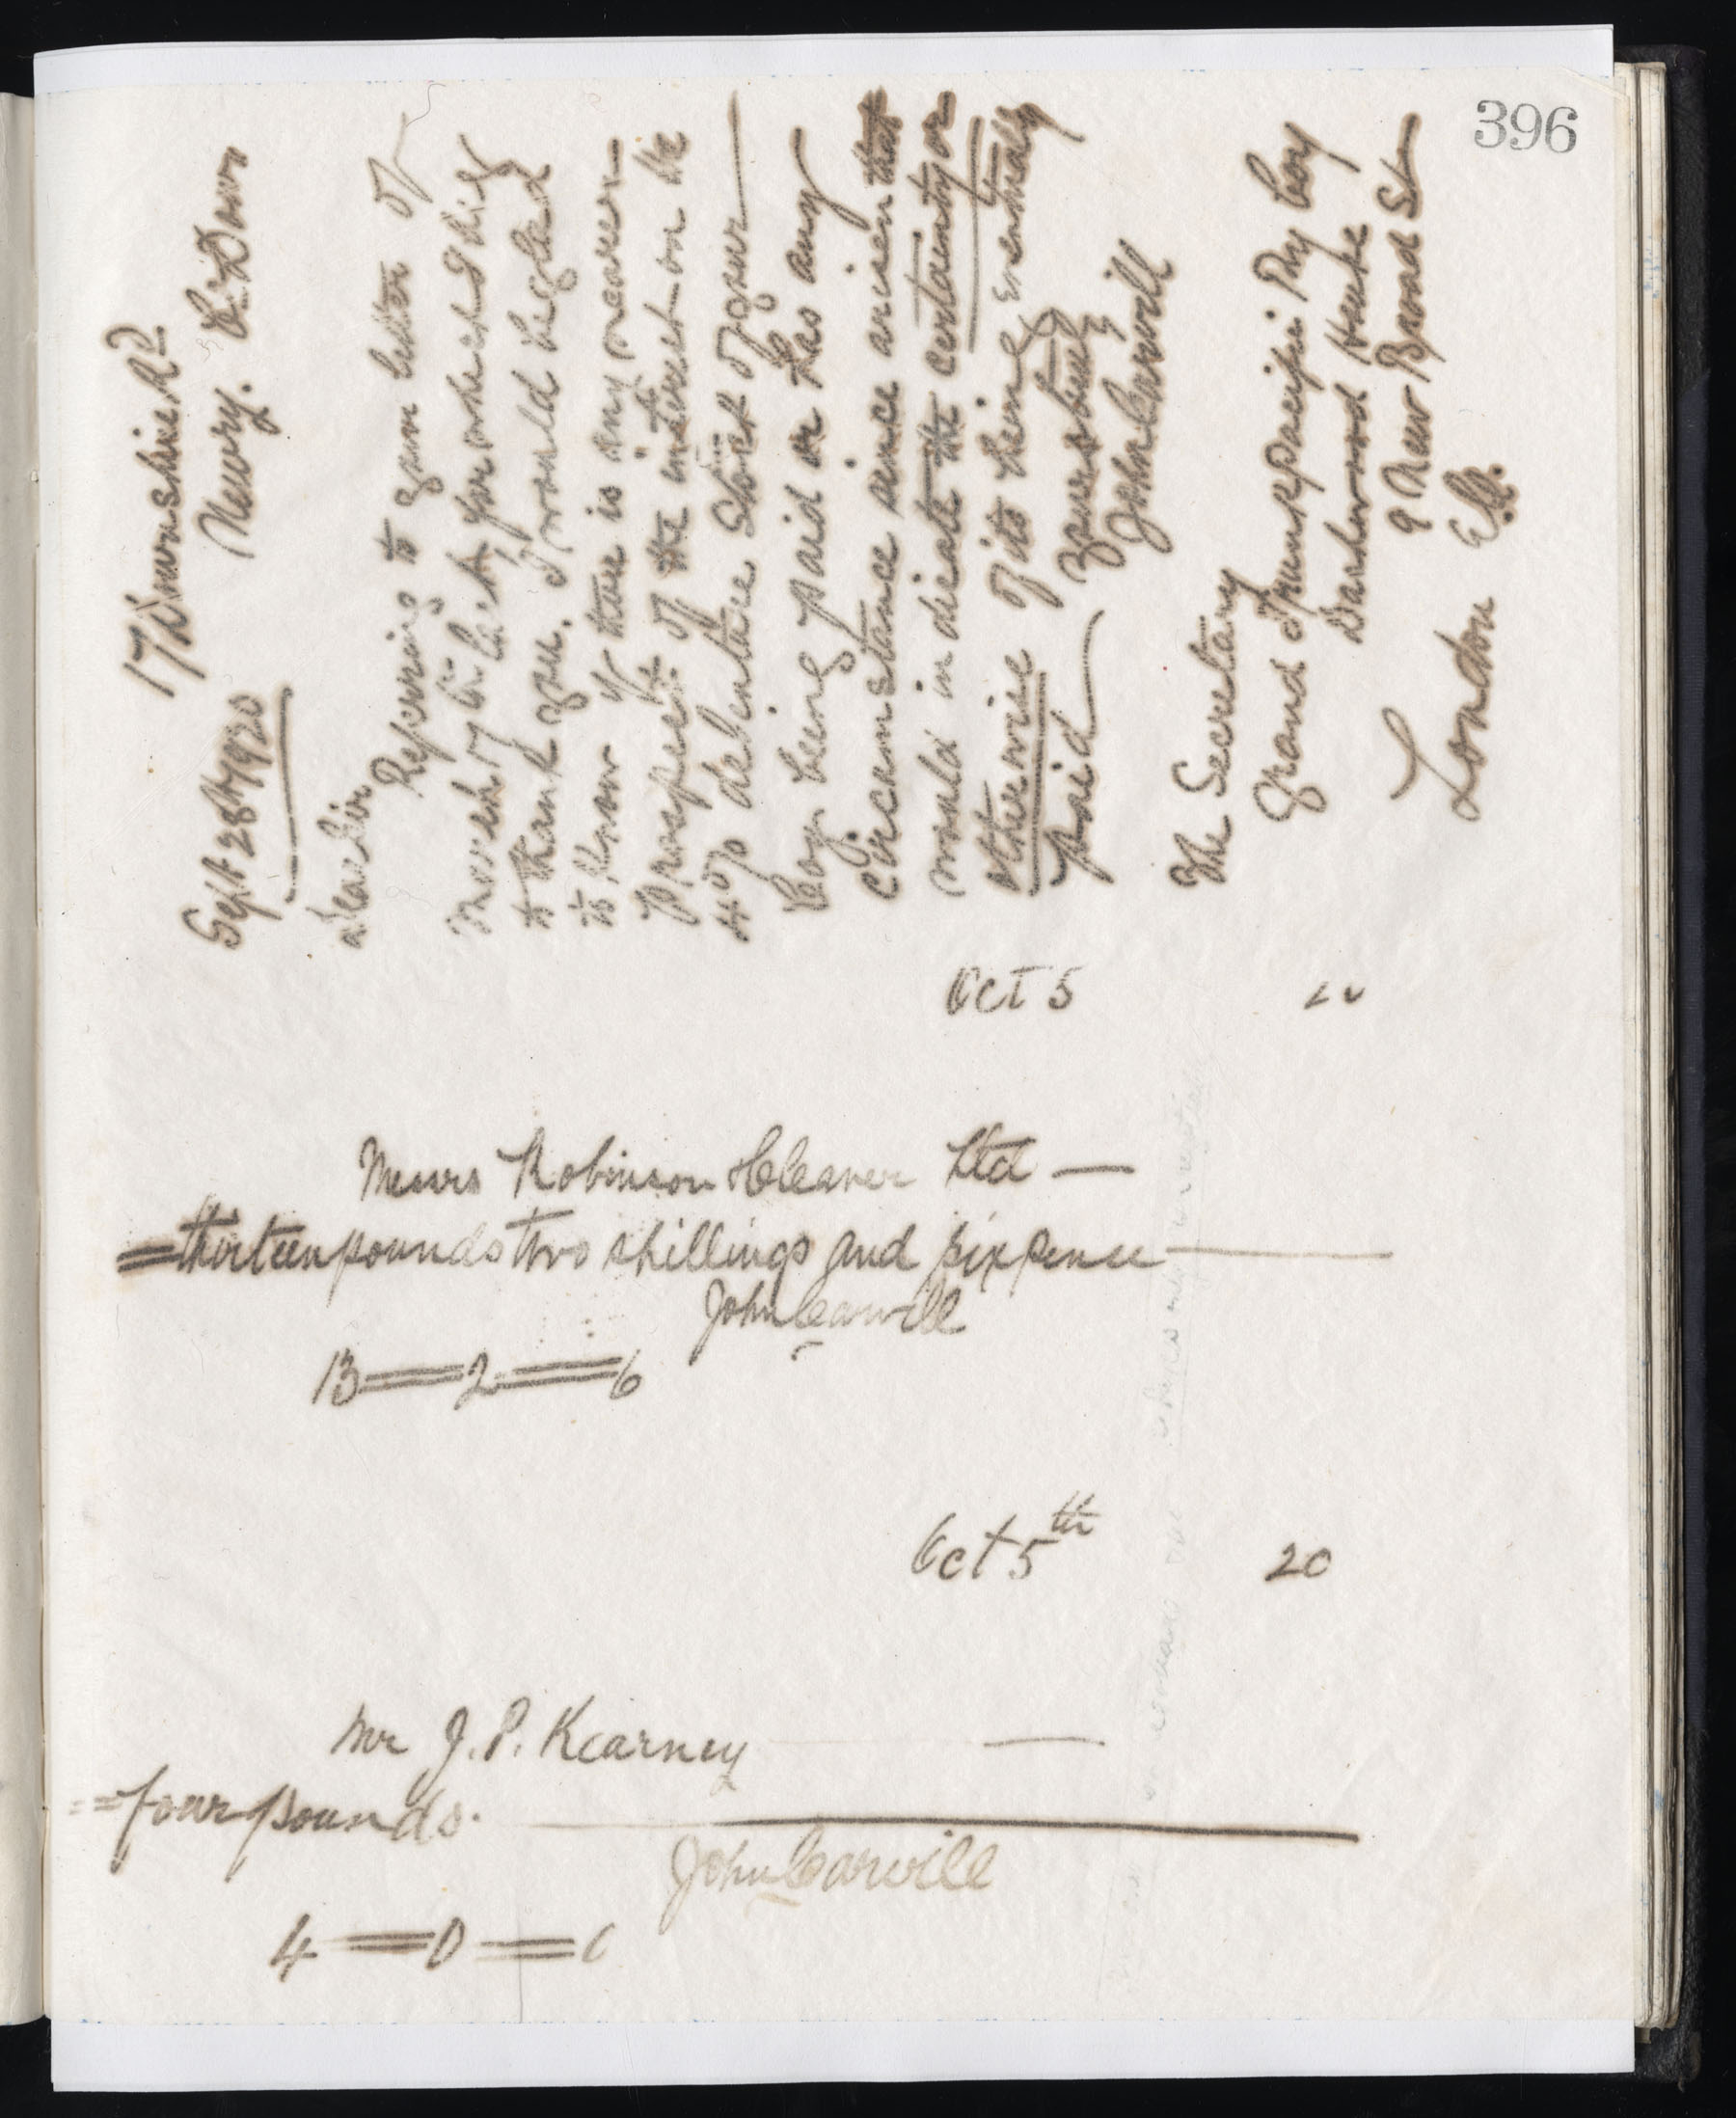 396
17 Downshire Rd
Newry. Co. Down
Sept 28th 1920
Dear Sir
Referring to your letter of
March 17th last for which I beg
to thank you. I would be glad
to know if there is any nearer
prospect of the interest on the
4% debenture Stock of your
Coy being paid or has any
circumstance since arisen that
would indicate the certainty or
otherwise of its being eventually
paid
Yours truly
John Carvill
The Secretary
Grand Trunk Pacific Rly Coy
Dashwood House
9 New Broad St
London E.C.
Oct 5 20
Messrs Robinson & Cleaver Ltd —
= thirteen pounds two shillings and six pence —
John Carvill
13 = 2 = 6
Oct 5th 20
Mr J. P. Kearney —
= four pounds. —
John Carvill
4 = 0 = 0